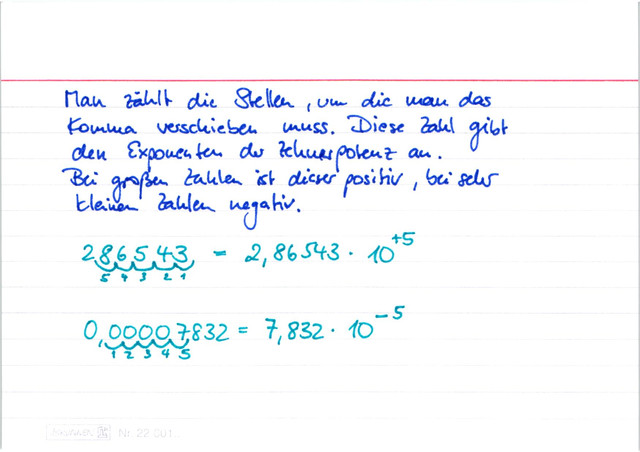 Man zählt die Stellen, um die man das
Komma verschieben muss. Diese Zahl gibt
den Exponenten der Zehnerpotenz an.
Bei großen Zahlen ist dieser positiv, bei sehr
kleinen Zahlen negativ.
286543 = 2,86543 · 10^+5
5 4 3 2 1
0,00007832 = 7,832 · 10^-5
1 2 3 4 5
Nr. 22 001